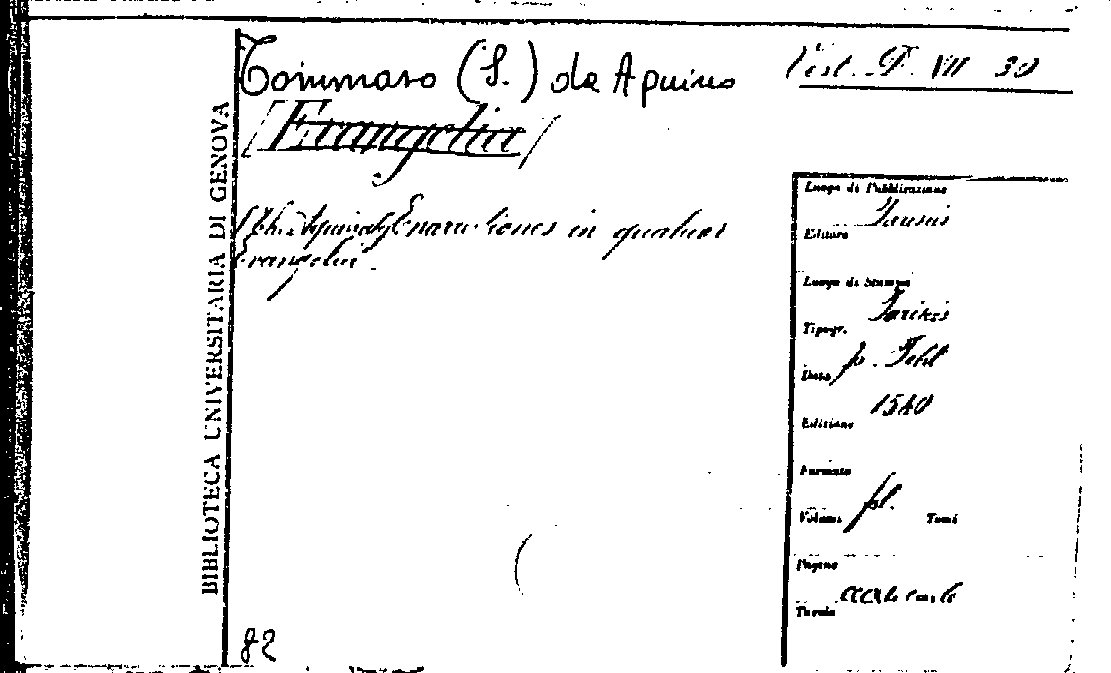 Tommaso (S.) de Aquino
P. VII 30
[Evangelia]
Enarrationes in quatuor
Evangelia.
BIBLIOTECA UNIVERSITARIA DI GENOVA
Luogo di Pubblicazione
Parisiis
Editore
Luogo di Stampa
Parisiis
Tipogr.
Data
1540
Edizione
Formato
Volume fol. Tomi
Pagine
Tavole
82